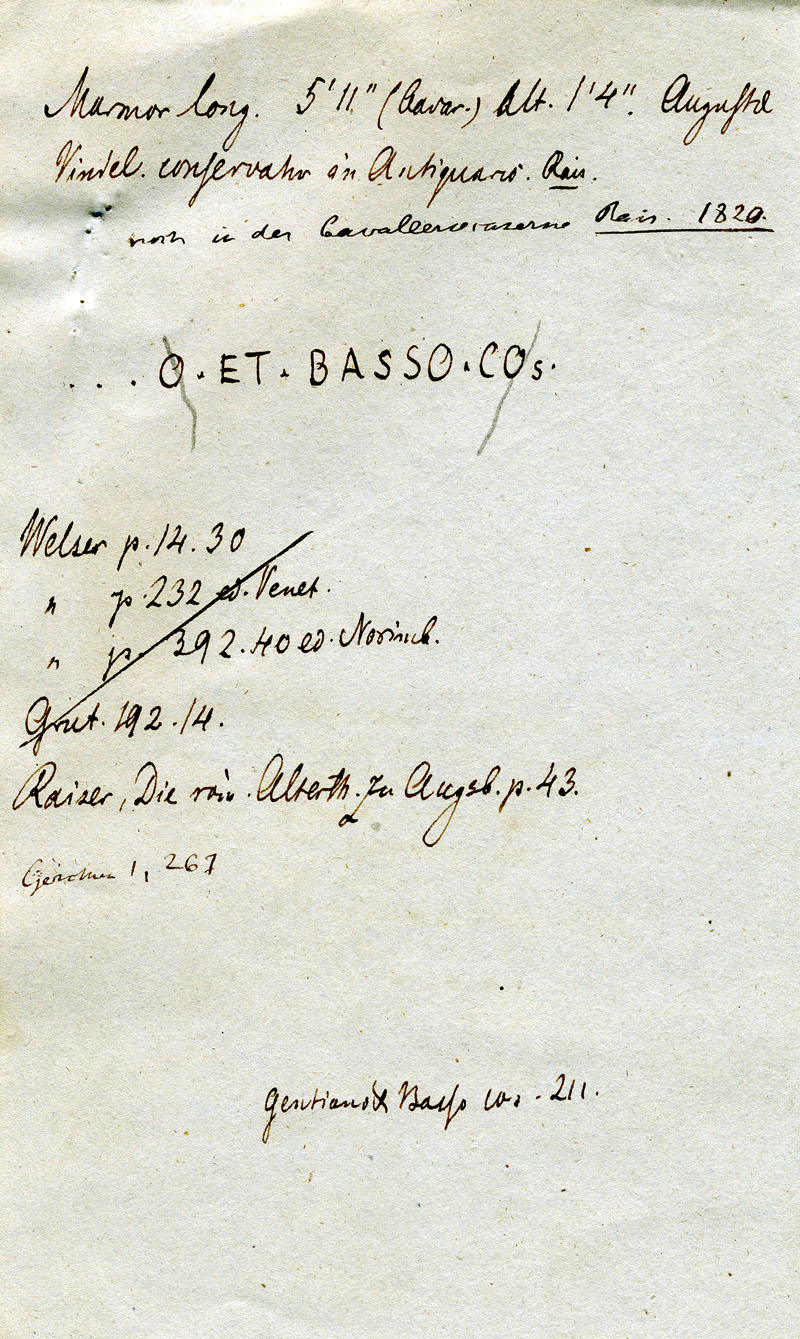 Marmor long. 5' 11" (Bavar.) Alt. 1' 4". Augustæ
Vindel. conservatur in Antiquario. Rais.
noch in der Cavallerie Rais. 1820.
. . . O · ET · BASSO · COs.
Welser p. 14. 30
" p. 232 ed. Venet.
" p. 392. 40 ed. Norimb.
Grut. 192. 14.
Raiser, Die röm. Alterth. zu Augsb. p. 43.
1, 267
Gentiano & Basso cos. 211.